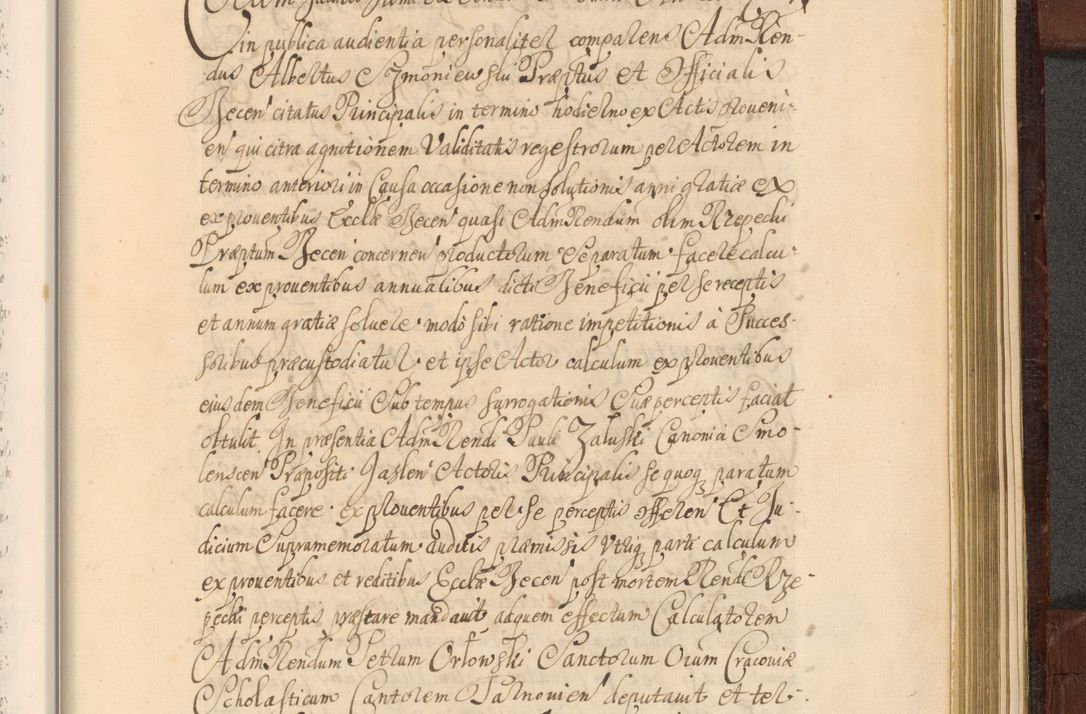 in publica audientia personaliter comparens AdmRen-
dus Albertus Szmoniewski Præptus et Officialis
Becen' citatus Principalis in termino hodierno ex Actis proveni-
en' qui citra agnitionem Validitatis regestrorum per Actorem in
termino anteriori in Causa occasione non solutionis anni gratiæ ex
ex proventibus Ecclæ Becen' quasi AdmRendum olim Rzepecki
Præptum Becen' concernen' productorum Separatum facere calcu-
lum ex proventibus annualibus dicti Beneficii per se receptis
et annum gratiæ solvere modò sibi ratione impetitionis à Succes-
soribus præcustodiatur et ipse Actor calculum ex proventibus
eiusdem Beneficii Sub tempus surrogationis Suæ perceptis faciat
obtulit In præsentia AdmRendi Pauli Zaluski Canonici Smo-
lenscen' Præpositi Jaslen' Actoris Principalis se quoq paratum
calculum facere ex proventibus per se perceptis offeren' Et Ju-
dicium Supramemoratum auditis præmissis Utriq parti calculum
ex proventibus et reditibus Ecclæ Becen' post mortem Rendi Rze-
pecki perceptis præstare mandavit adquem effectum Calculatorem
AdmRendum Petrum Orlowski Sanctorum Oium Cracoviæ
Scholasticum Cantorem Tarnovien' deputavit et ter-